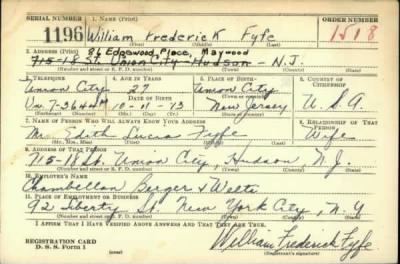 SERIAL NUMBER 1. NAME (Print) ORDER NUMBER
1196 William Frederick Fyfe 1518
(First) (Middle) (Last)
2. ADDRESS (Print) 86 Edgewood Place, Maywood
715-18 St. Union City Hudson - N.J.
(Number and street or R. F. D. number) (Town) (County) (State)
3. TELEPHONE 4. AGE IN YEARS 5. PLACE OF BIRTH 6. COUNTRY OF CITIZENSHIP
Union City 27 Union City
DATE OF BIRTH
Un. 7-3644 10-11-13 New Jersey U. S. A.
(Exchange) (Number) (Mo.) (Day) (Yr.) (State or country)
7. NAME OF PERSON WHO WILL ALWAYS KNOW YOUR ADDRESS 8. RELATIONSHIP OF THAT PERSON
Edith Fyfe Wife
(Mr., Mrs., Miss) (First) (Middle) (Last)
9. ADDRESS OF THAT PERSON
715-18 St. Union City, Hudson, N. J.
(Number and street or R. F. D. number) (Town) (County) (State)
10. EMPLOYER'S NAME
Chambellan Berger &
11. PLACE OF EMPLOYMENT OR BUSINESS
92 Liberty St. New York City, N.Y
(Number and street or R. F. D. number) (Town) (County) (State)
I AFFIRM THAT I HAVE VERIFIED ABOVE ANSWERS AND THAT THEY ARE TRUE.
REGISTRATION CARD
D. S. S. Form 1 (over)
William Frederick Fyfe
(Registrant's signature)